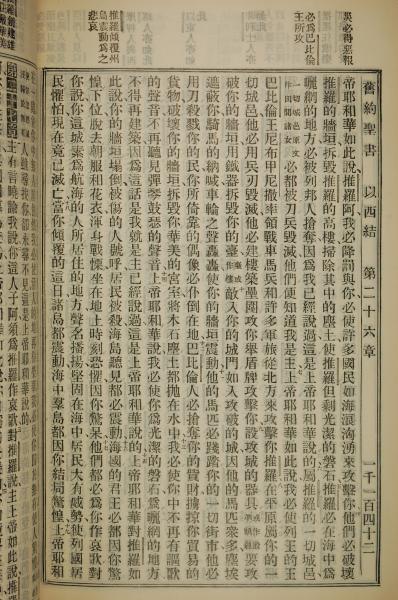 舊約聖書 以西結 第二十六章 一千一百四十二
必爲巴比倫
王所攻
推羅傾覆州
島震動爲之
悲哀
帝耶和華如此說推羅阿我必降罰與你必使許多國民如海濤洶湧來攻擊你他們必破壞
推羅的牆垣拆毀推羅的高樓掃除其中的塵土使推羅但剩光潔的磐石推羅必在海中爲
曬網的地方必被列邦人搶奪因爲我已經說過這是主上帝耶和華說的屬推羅的一切城邑
一切城邑原文作田間諸女必都被刀兵毀滅他們便知道我是主上帝耶和華如此說我必使列王的王
巴比倫王尼布甲尼撒率領戰車馬兵和許多軍旅從北方來攻擊你推羅在平原屬你的一
切城邑他必用兵刃毀滅他必建樓築壘圍攻你舉盾牌攻擊你設攻城的器具要攻
破你的牆垣用鐵器拆毀你的臺敵入你的城門如入攻破的城因他的馬匹衆多塵埃
遮蔽你騎馬的吶喊車輪之聲轟轟使你的牆垣震動他的馬匹必踐踏你的一切街市他必
用刀殺戮你的民你所倚靠的偶像必仆倒在地巴比倫人必搶奪你的貲財擄掠你貿易的
貨物破壞你的牆垣拆毀你華美的宮室將木石塵土都拋在水中我必使你中不再有謳歌
的聲音不再聽見彈琴鼓瑟的聲音上帝耶和華說我必使你爲光潔的磐石爲曬網的地方
不得再建築因爲這話是我就是主已經說過這是上帝耶和華說的上帝耶和華對推羅如
此說你的牆垣塌倒被傷的人號呼居民被殺海島聽見都必震動海國的君王必都因你驚
惶下位脫去朝服和花衣渾身戰慄坐在地上時刻恐懼因你驚呆他們都必爲你作哀歌對
你說你這城素爲航海的人所居住的地方聲名播揚堅固在海中居民大有威勢使列國居
民懼怕現在竟已滅亡當你傾覆的這日諸島都震動海中羣島都因你結局驚惶上帝耶和